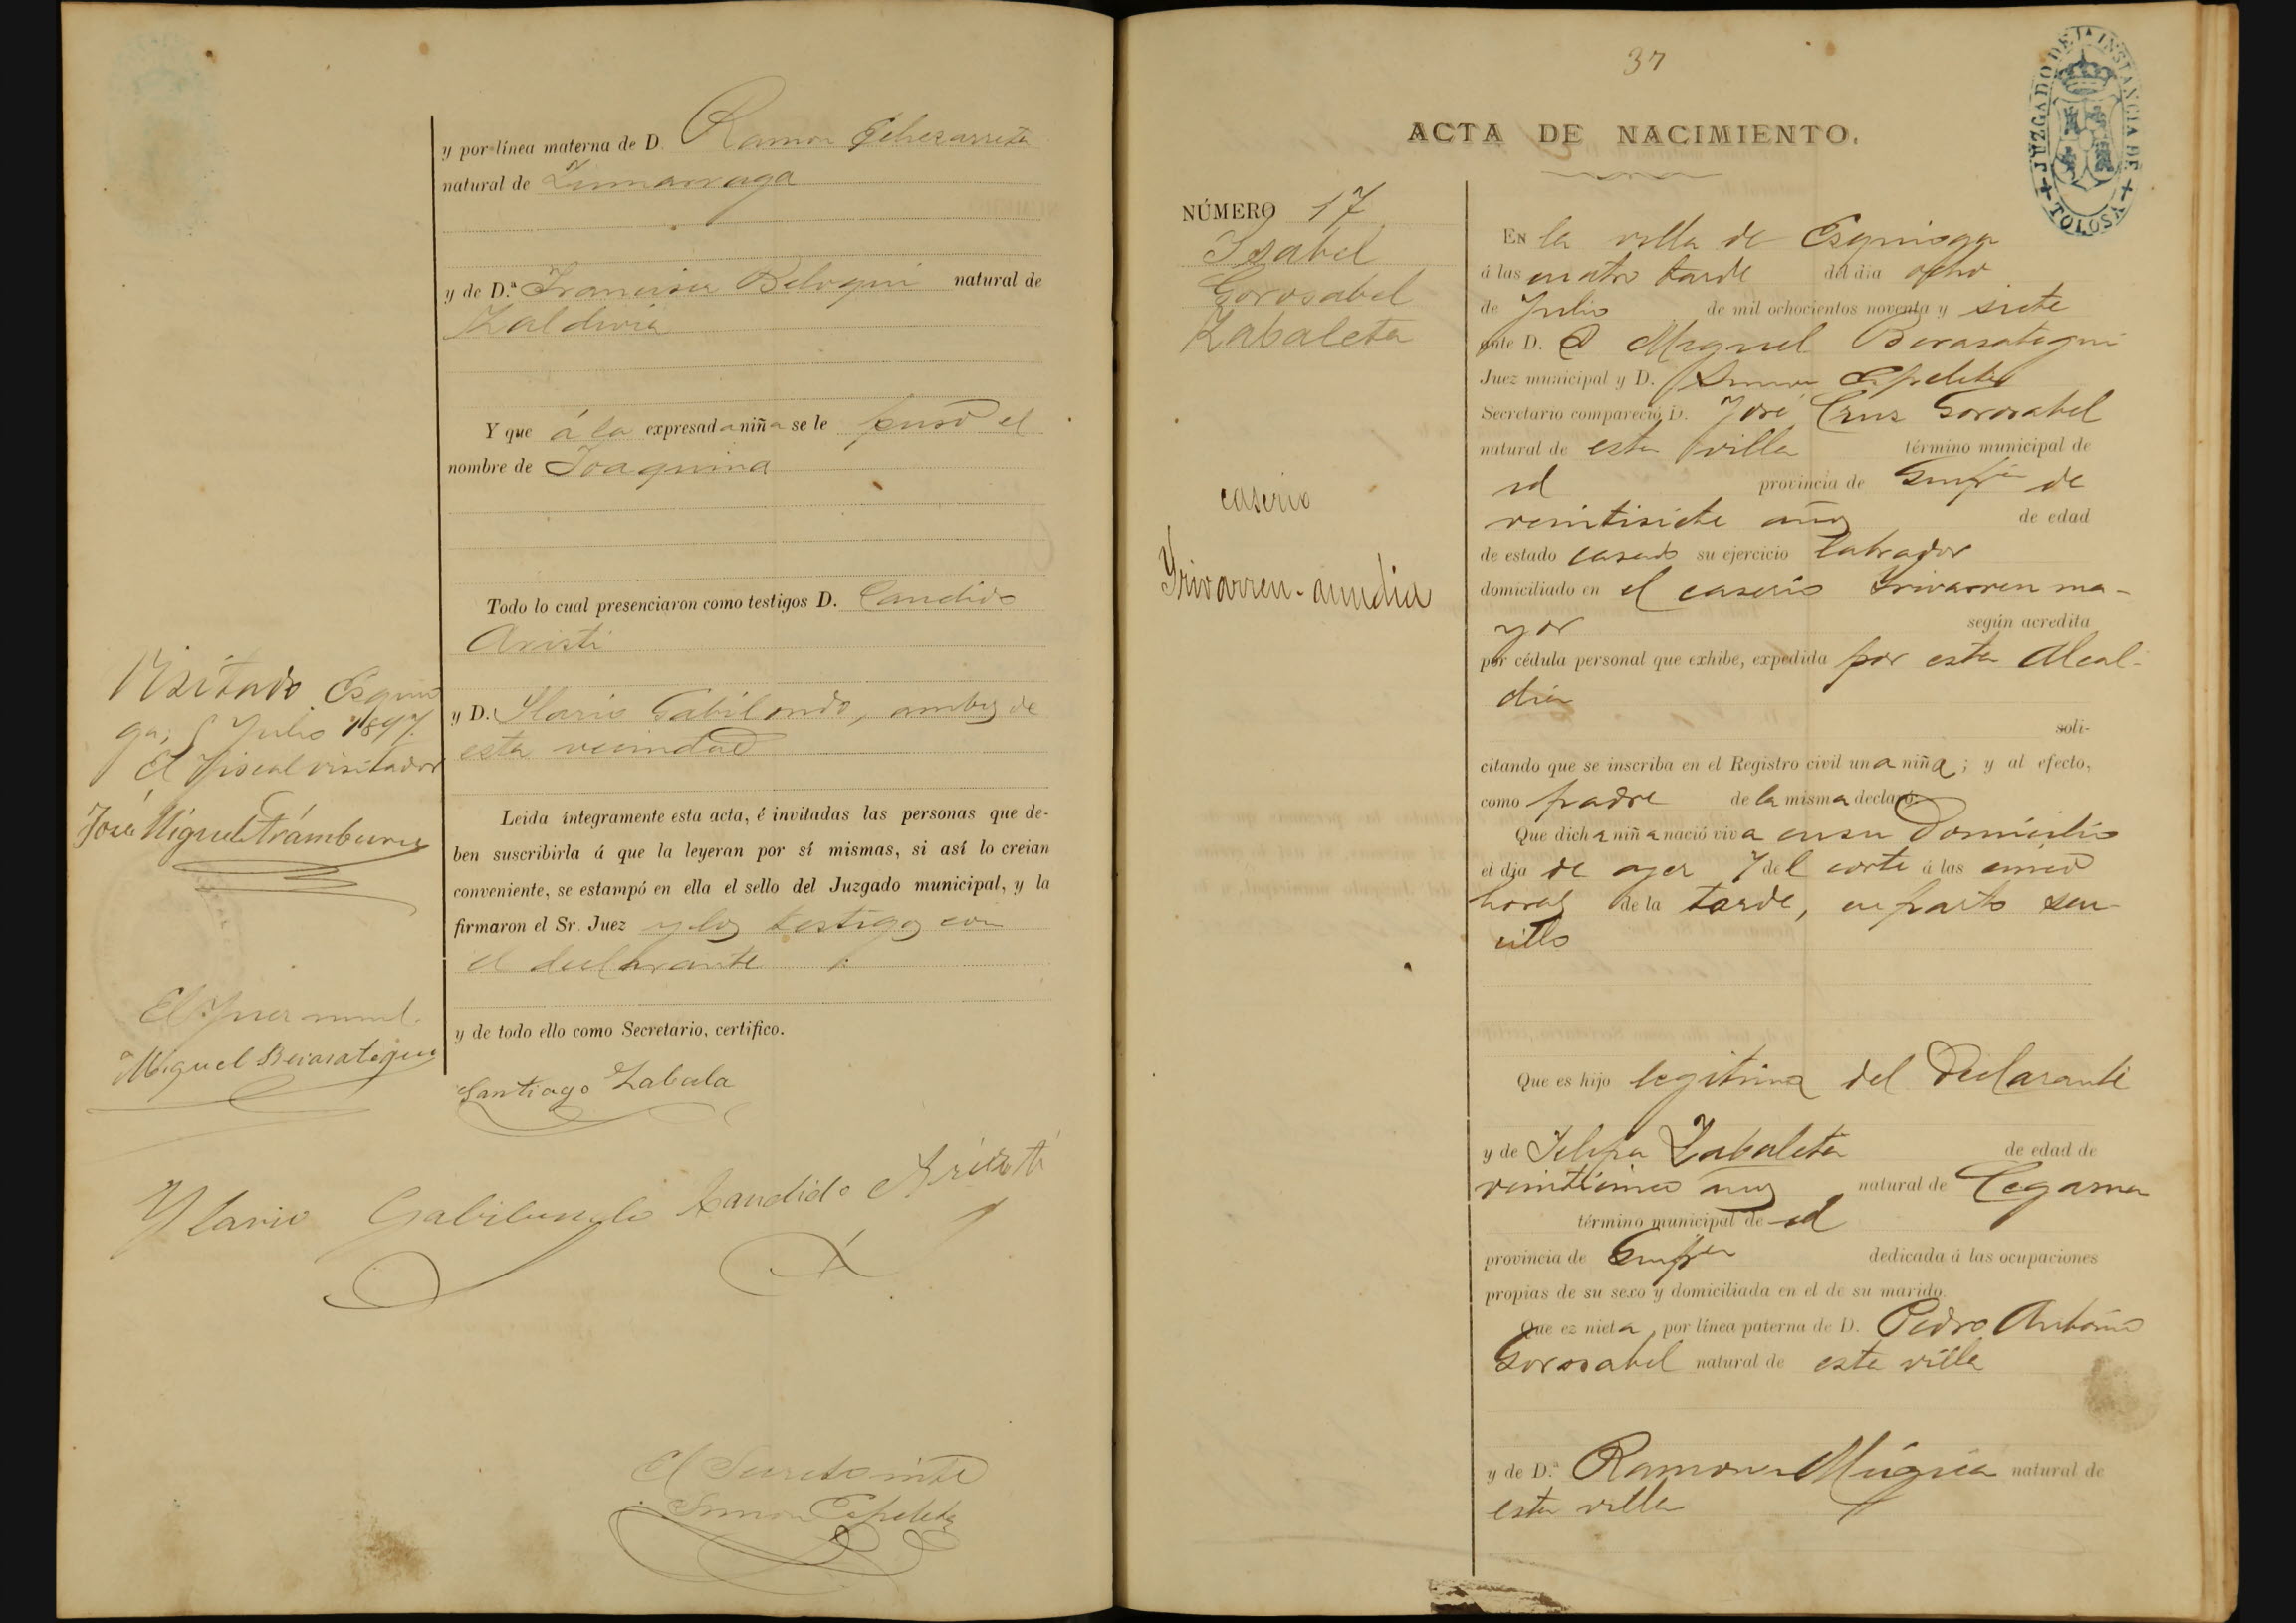 y por línea materna de D. Ramon Echezarreta
natural de Zumarraga
y de D.ª Francisca Beloqui natural de
Zaldivia
Y que á la expresada niña se le puso el
nombre de Joaquina
Todo lo cual presenciaron como testigos D. Candido
Aristi
y D. Ylario Gabilondo, ambos de
esta vecindad
Leida íntegramente esta acta, é invitadas las personas que de-
ben suscribirla á que la leyeran por sí mismas, si así lo creian
conveniente, se estampó en ella el sello del Juzgado municipal, y la
firmaron el Sr. Juez y los testigos con
el declarante
y de todo ello como Secretario, certifico.
Visitado Esquio
ga, Julio 1897.
El Fiscal visitador
José Miguel Aramburu
El Juez munl.
Miguel Berasategui
Santiago Zabala
Ylario Gabilondo Candido Aristi
El Secreto intº
Simon Espeleta
37
JUZGADO DE 1ª INSTANCIA DE TOLOSA
ACTA DE NACIMIENTO.
NÚMERO 17
Isabel
Gorosabel
Zabaleta
caserio
Yrivarren-aundia
EN la villa de Esquioga
á las cuatro tarde del dia ocho
de Julio de mil ochocientos noventa y siete
ante D. D Miguel Berasategui
Juez municipal y D. Simon Espeleta
Secretario compareció D. José Cruz Gorosabel
natural de esta villa término municipal de
id provincia de Guipª de
veintisiete años de edad
de estado casado su ejercicio labrador
domiciliado en el caserio Yrivarren ma-
yor según acredita
por cédula personal que exhibe, expedida por esta Alcal-
dia
soli-
citando que se inscriba en el Registro civil una niña; y al efecto,
como padre de la misma declaró:
Que dicha niña nació viva en su Domicilio
el dia de ayer 7 del corte á las cinco
horas de la tarde, en parto sen-
cillo
Que es hijo legitima del Declarante
y de Felipa Zabaleta de edad de
veinticinco años natural de Cegama
término municipal de id
provincia de Guipª dedicada á las ocupaciones
propias de su sexo y domiciliada en el de su marido.
Que ez nieta, por línea paterna de D. Pedro Antonio
Gorosabel natural de esta villa
y de D.ª Ramona Múgica natural de
esta villa